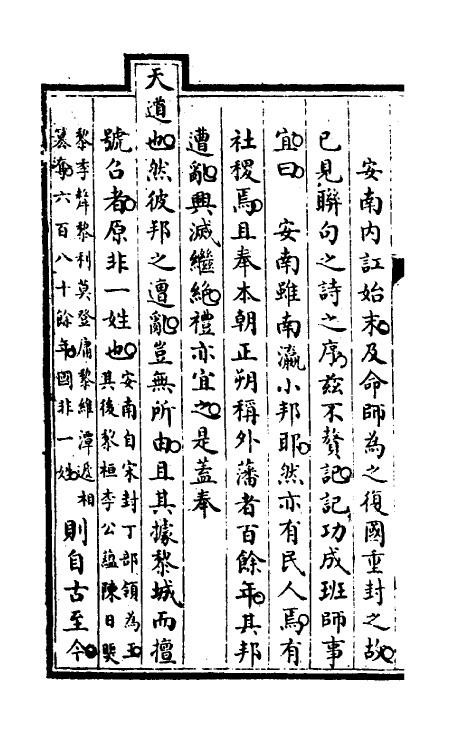 安南内訌始末及命師為之復國重封之故
已見聨句之詩之序茲不贅記記功成班師事
宜曰　安南雖南瀛小邦耶然亦有民人焉有
社稷焉且奉本朝正朔稱外藩者百餘年其邦
遭亂興滅繼絶禮亦宜之是蓋奉
天道也然彼邦之遭亂豈無所由且其據黎城而擅
號召者原非一姓也安南自宋封丁部領為王其後黎桓李公蘊陳日煚
黎季犛黎利莫登庸黎維潭遞相簒奪六百八十餘年國非一姓則自古至今